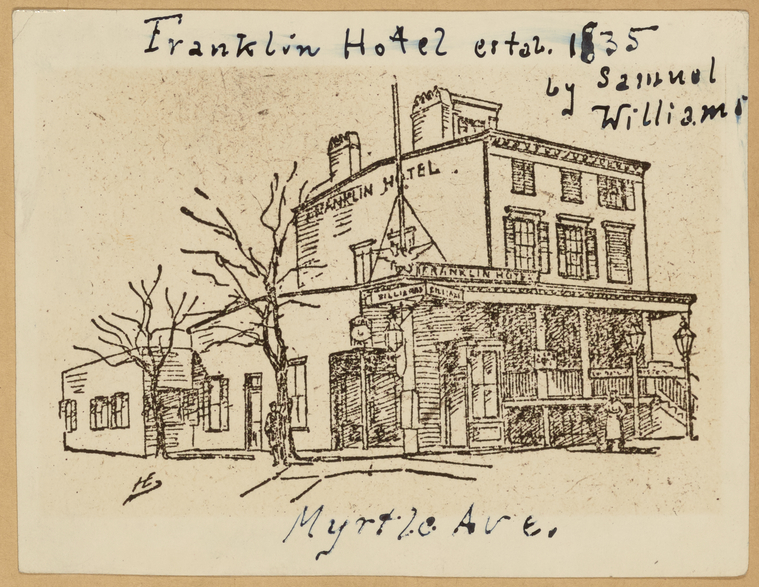 Franklin Hotel estab. 1835
by Samuel
Williams
FRANKLIN HOTEL
FRANKLIN HOTEL
Myrtle Ave.